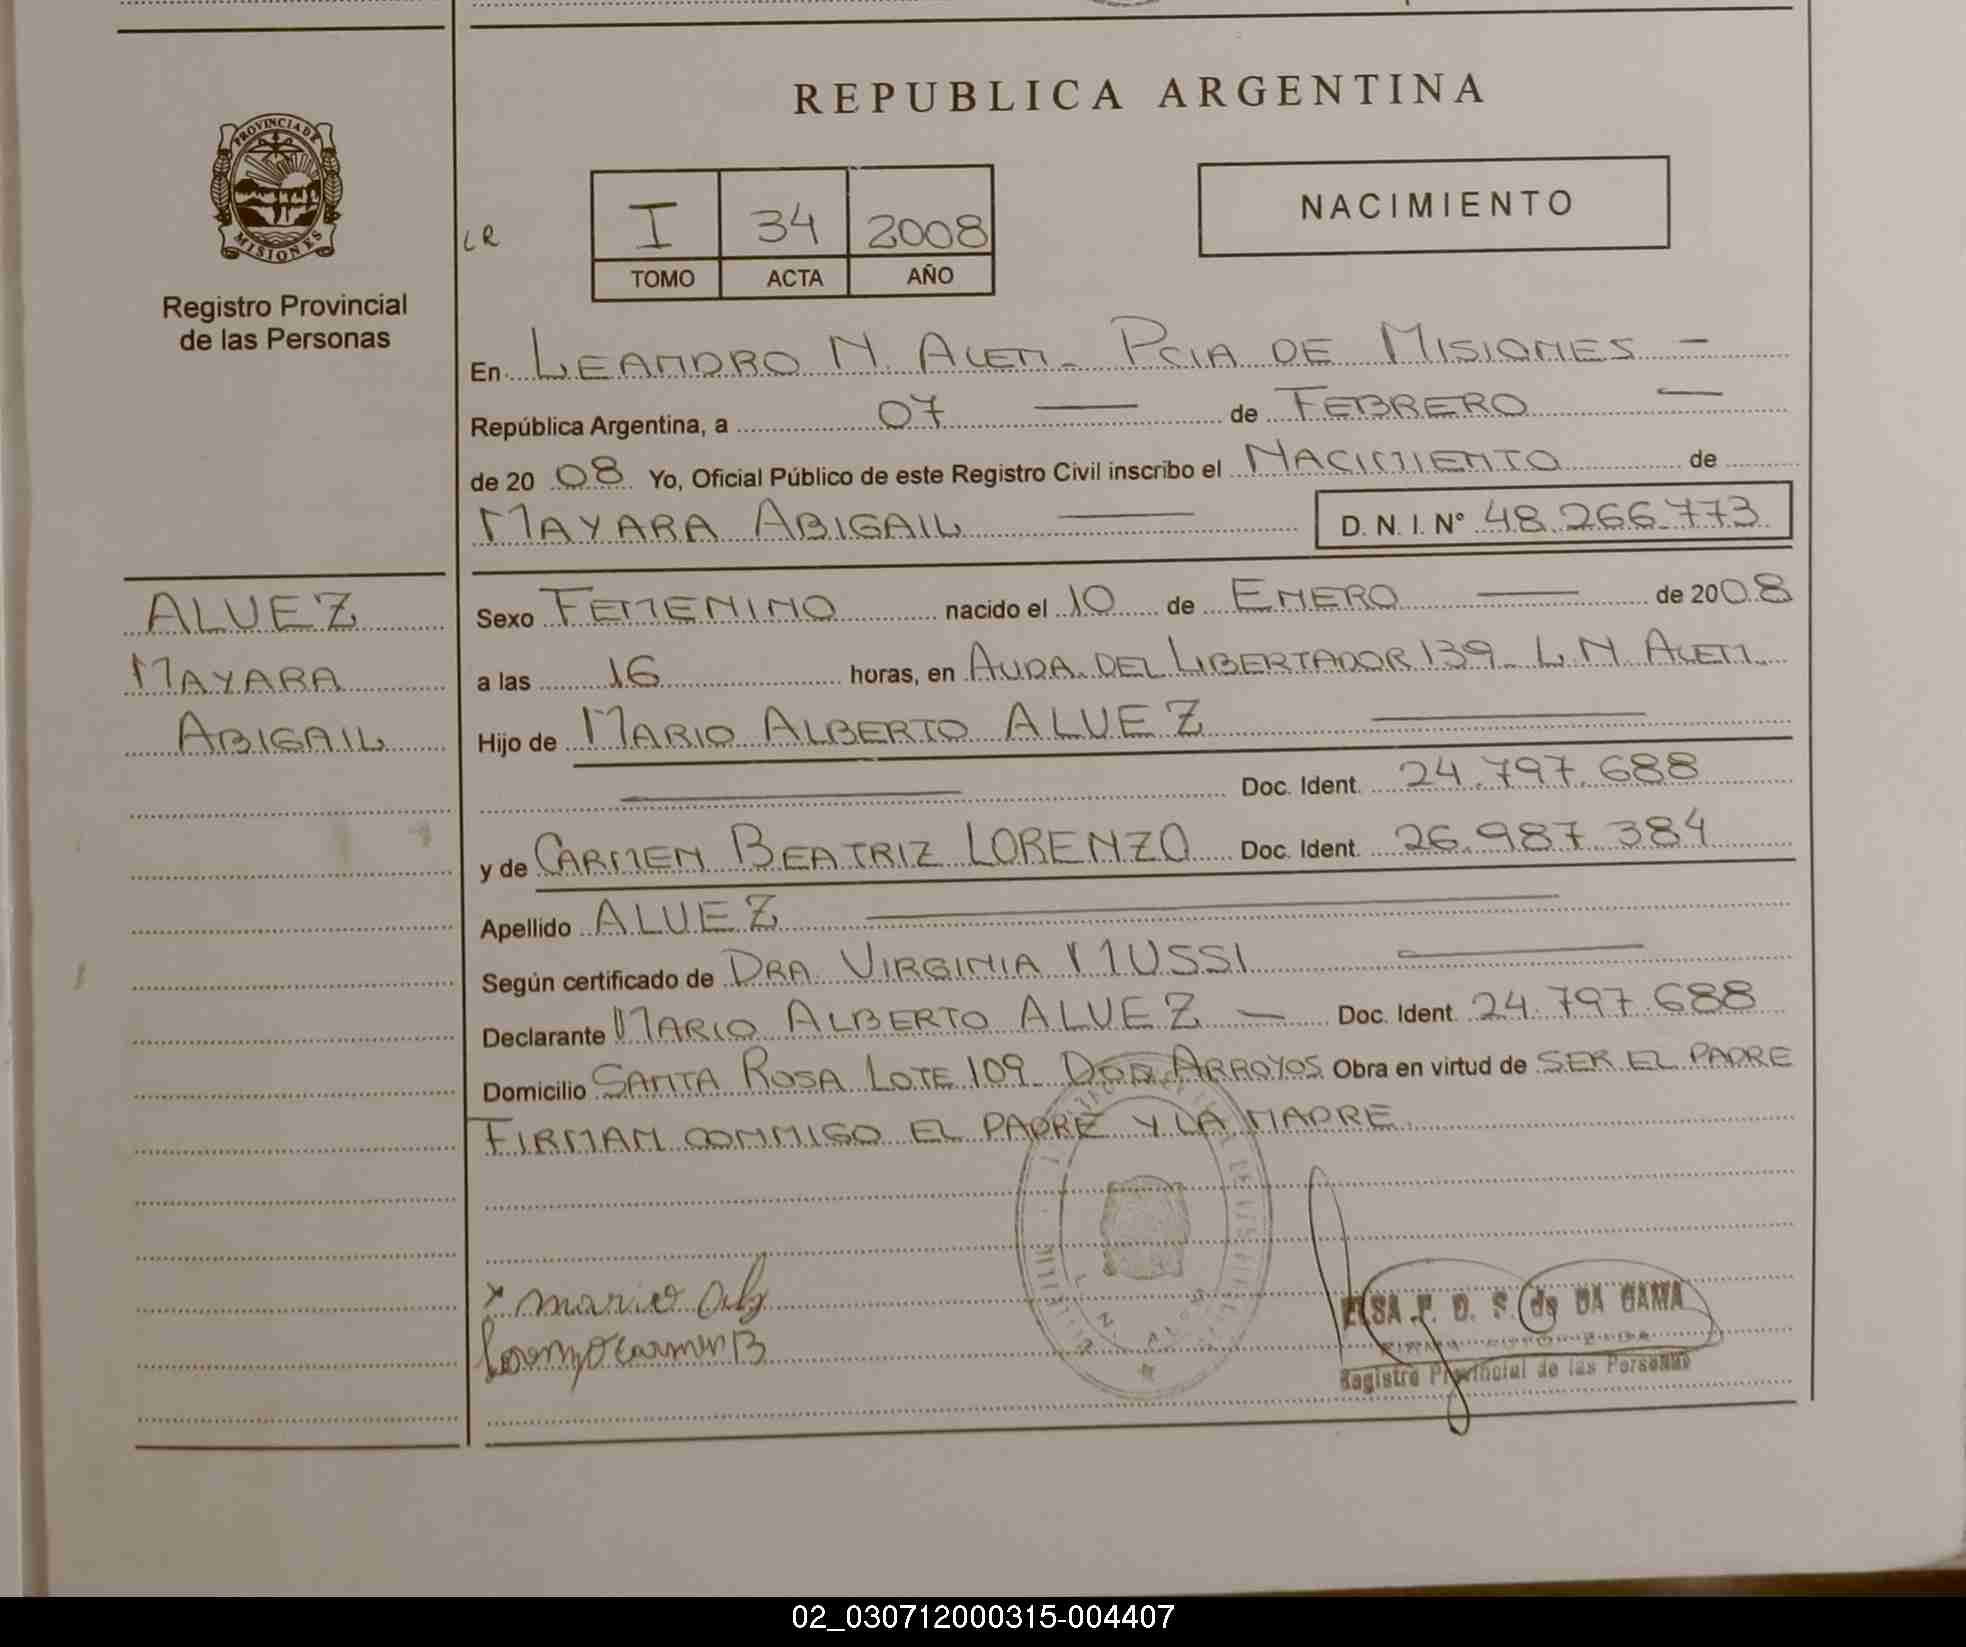 REPUBLICA ARGENTINA
PROVINCIA DE
MISIONES
Registro Provincial
de las Personas
LR
I 34 2008
TOMO ACTA AÑO
NACIMIENTO
En LEANDRO N. ALEM - PCIA DE MISIONES -
República Argentina, a 07 — de FEBRERO —
de 20 08 Yo, Oficial Público de este Registro Civil inscribo el NACIMIENTO de
MAYARA ABIGAIL — D. N. I. N° 48.266.773
ALVEZ
MAYARA
ABIGAIL
Sexo FEMENINO nacido el 10 de ENERO — de 2008
a las 16 horas, en AVDA. DEL LIBERTADOR 139 - L. N. ALEM.
Hijo de MARIO ALBERTO ALVEZ —
— Doc. Ident. 24.797.688
y de CARMEN BEATRIZ LORENZO Doc. Ident. 26.987.384
Apellido ALVEZ —
Según certificado de DRA. VIRGINIA MUSSI —
Declarante MARIO ALBERTO ALVEZ — Doc. Ident. 24.797.688
Domicilio SANTA ROSA LOTE 109 - DOS ARROYOS Obra en virtud de SER EL PADRE
FIRMAN CONMIGO EL PADRE Y LA MADRE.
x mario alb
Lorenzo Carmen B
ELSA P. D. S. de DA GAMA
FIRMA AUTORIZADA
Registro Provincial de las Personas
02_030712000315-004407